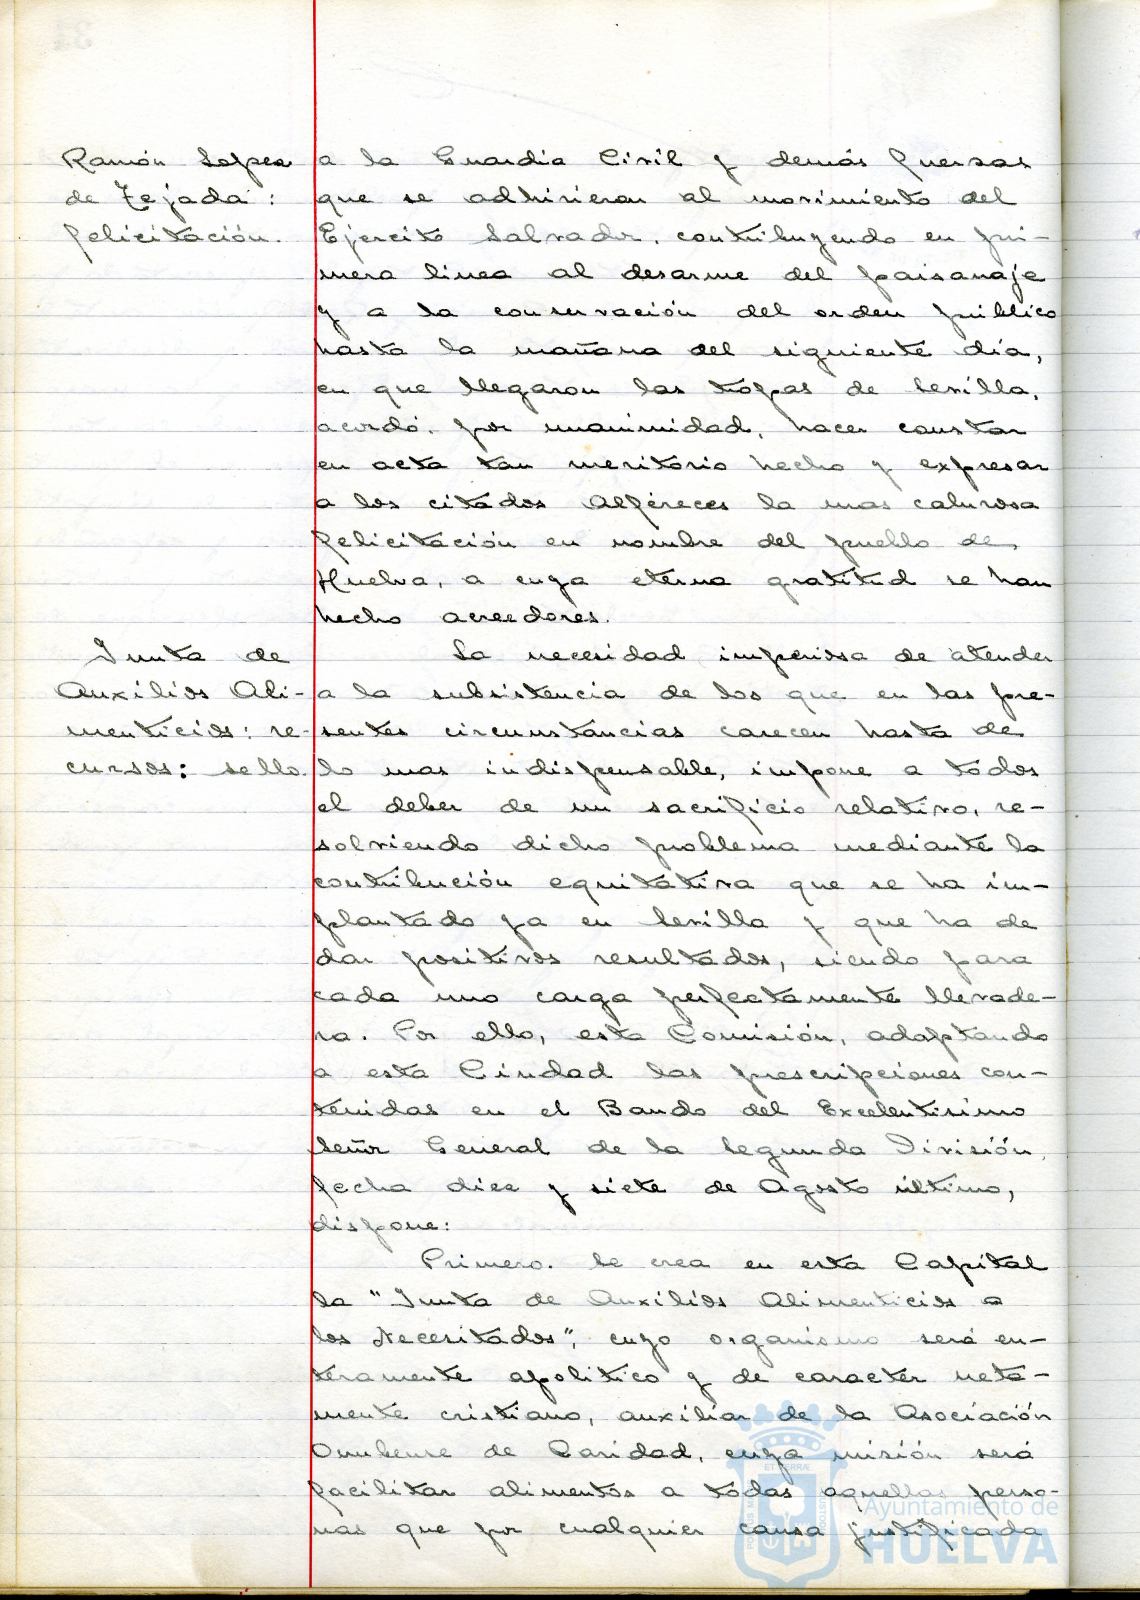 Ramón Lopez
de Tejada:
felicitación.
a la Guardia Civil y demás fuerzas
que se adhirieron al movimiento del
Ejercito Salvador, contribuyendo en pri-
mera linea al desarme del paisanaje
y a la conservación del orden público
hasta la mañana del siguiente día,
en que llegaron las tropas de Sevilla,
acordó, por unanimidad, hacer constar
en acta tan meritorio hecho y expresar
a los citados Alféreces la mas calurosa
felicitación en nombre del pueblo de
Huelva, a cuya eterna gratitud se han
hecho acreedores.
Junta de
Auxilios Ali-
menticios: re-
cursos: sello.
La necesidad imperiosa de atender
a la subsistencia de los que en las pre-
sentes circunstancias carecen hasta de
lo mas indispensable, impone a todos
el deber de un sacrificio relativo, re-
solviendo dicho problema mediante la
contribución equitativa que se ha im-
plantado ya en Sevilla y que ha de
dar positivos resultados, siendo para
cada uno carga perfectamente llevade-
ra. Por ello, esta Comisión, adaptando
a esta Ciudad las prescripciones con-
tenidas en el Bando del Excelentísimo
Señor General de la Segunda División,
fecha diez y siete de Agosto último,
dispone:
Primero. Se crea en esta Capital
la "Junta de Auxilios Alimenticios a
los Necesitados", cuyo organismo será en-
teramente apolitico y de caracter neta-
mente cristiano, auxiliar de la Asociación
Onubense de Caridad, cuya misión será
facilitar alimentos a todas aquellas perso-
nas que por cualquier causa justificada
Ayuntamiento de
HUELVA